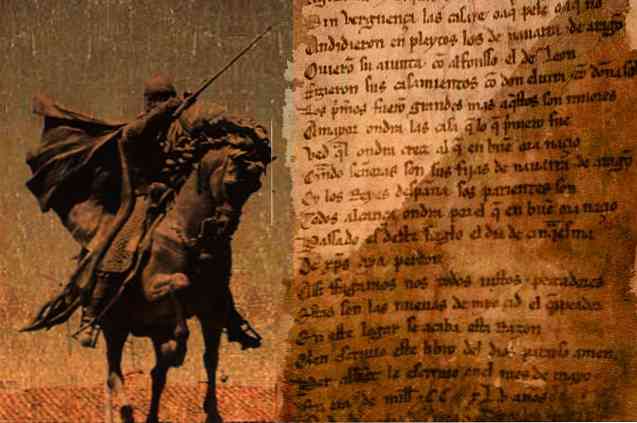 Sin verguença las casare o aq̅ pese o aq̅ no
Andidieron en pleytos los de nauarra & de arago
Ouierõ su aiunta cõ alfonsso el de Leon
Fizieron sus casamientos cõ don eluira & cõ doña sol
Los p̃meros fuerõ grandes mas aq̃stos son miiores
A mayor ondra las casa q̃ lo q̃ p̃mero fue
Ved q̃l ondra creçe al q̃ en buẽ ora naçio
Q̃ndo señoras son sus fijas de nauarra & de arago
Oy los Reyes despaña sos parientes son
A todos alcança ondra por el q̃ en buẽ ora naçio
Passado es deste sieglo el dia de cinq̃esma
De xp̅s aya perdon
Assi ffagamos nos todos iustos & peccadores
Estas son las nueuas de myo çid el campeador
En este logar se acaba esta Razon
Quien escriuio este libro del dios parayso amen
Per abbat le escriuio en el mes de mayo
En era de mill & CC xLv años